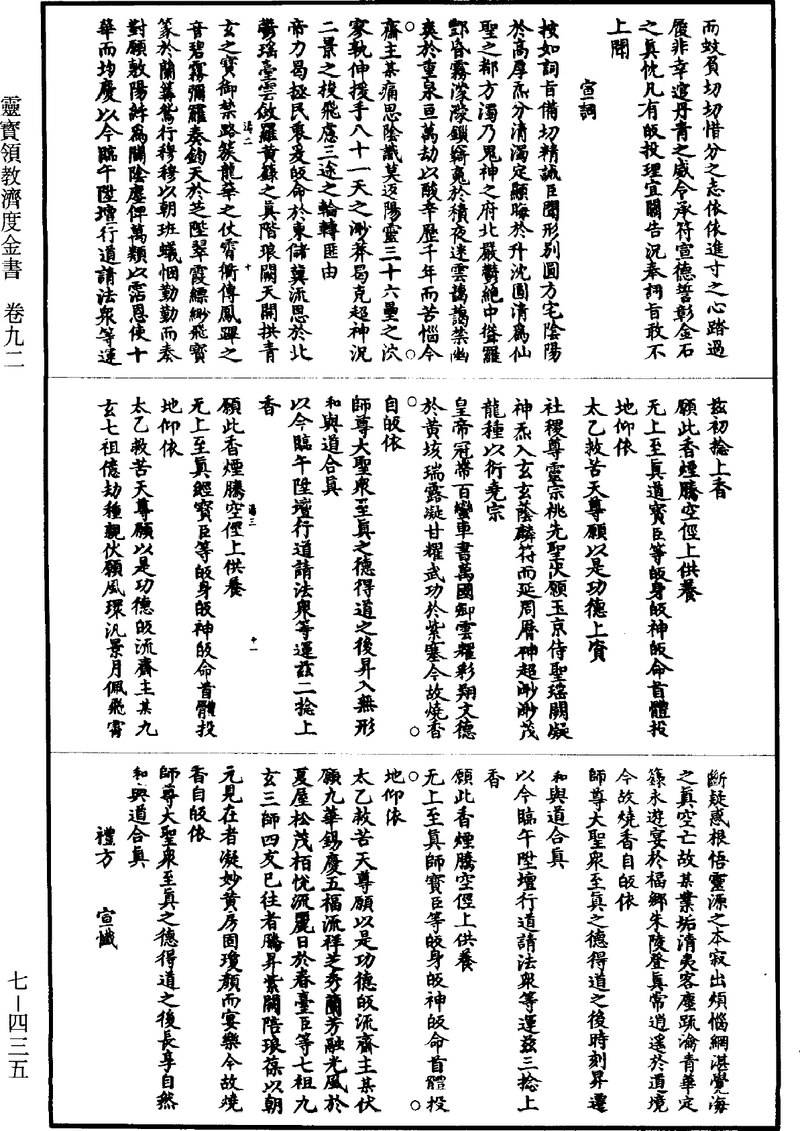 而蚊負切切惜分之志依依進寸之心踏過
履非幸遑丹青之威令承符宣德誓彰金石
之真忱凡有皈投理宜關告況奏詞旨敢不
上聞
宣詞
按如詞旨備切精誠臣聞形别圓方宅陰陽
於高厚炁分清濁定顯晦於升沈圓清爲仙
聖之都方濁乃鬼神之府北嚴鬱絶中聳羅
酆昏霧濛濛鎖窮魂於積夜迷雲藹藹禁幽
爽於重泉亘萬劫以酸辛歷千年而苦惱今
齋主某痛思陰識莫返陽靈三十六壘之泬
寥孰伸援手八十一天之渺莽曷克超神況
二景之梭飛慮三途之輪轉匪由
帝力曷拯民哀爰皈命於東儲冀流思於北
鬱瑶臺雲斂羅黄籙之真階琅闕天開拱青
玄之寶御禁路簇龍華之仗霄衢傳鳳蹕之
音碧霧彌羅奏鈞天於芝陛翠霞縹緲飛寶
篆於蘭幕鴛行穆穆以朝班蟻悃勤勤而奏
對願敷陽紓爲闢陰塵俾萬類以霑恩使十
華而均慶以今臨午陞壇行道請法衆等運
兹初捻上香
願此香煙騰空徑上供養
无上至真道寶臣等皈身皈神皈命首體投
地仰依
太乙救苦天尊願以是功德上資
社稷尊靈宗桃先聖次願玉京侍聖瑶闕凝
神炁入玄玄蔭麟符而延周曆神超渺渺茂
龍種以衍堯宗
皇帝冠帶百蠻車書萬國卿雲耀彩翔文德
於黄垓瑞露凝甘耀武功於紫塞今故燒香
自皈依
師尊大聖衆至真之德得道之後昇入無形
和與道合真
以今臨午陞壇行道請法衆等運兹二捻上
香
願此香煙騰空徑上供養
无上至真經寶臣等皈身皈神皈命首體投
地仰依
太乙救苦天尊願以是功德皈流齋主某九
玄七祖億劫種親伏願風環汎景月佩飛霄
斷疑惑根悟靈源之本寂出煩惱網湛覺海
之真空亡故某業垢清夷客塵疏瀹青華定
籙永遊宴於福鄉朱陵登真常逍遥於道境
今故燒香自皈依
師尊大聖衆至真之德得道之後時刻昇遷
和與道合真
以今臨午陞壇行道請法衆等運兹三捻上
香
願此香煙騰空徑上供養
无上至真師寶臣等皈身皈神皈命首體投
地仰依
太乙救苦天尊願以是功德皈流齋主某伏
願九華錫慶五福流祥芝秀蘭芳融光風於
夏屋松茂栢悦流麗日於春臺臣等七祖九
玄三師四友已往者騰昇紫闕陪琅葆以朝
元見在者凝妙黄房固瓊顔而宴樂今故燒
香自皈依
師尊大聖衆至真之德得道之後長享自然
和與道合真
禮方 宣懺
靈寶領教濟度金書 卷九二
七—四三五